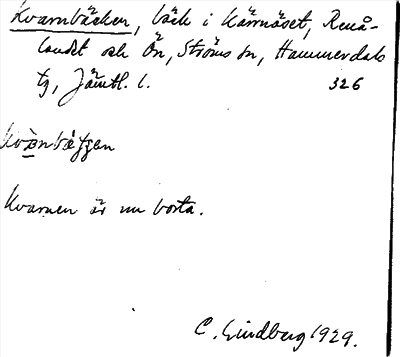 Kvarnbäcken, bäck i Kärrnäset, Renå-
landet och Ön, Ströms sn, Hammerdals
tg, Jämtl. l. 326
Kvarnen är nu borta.
C. Lindberg 1929.